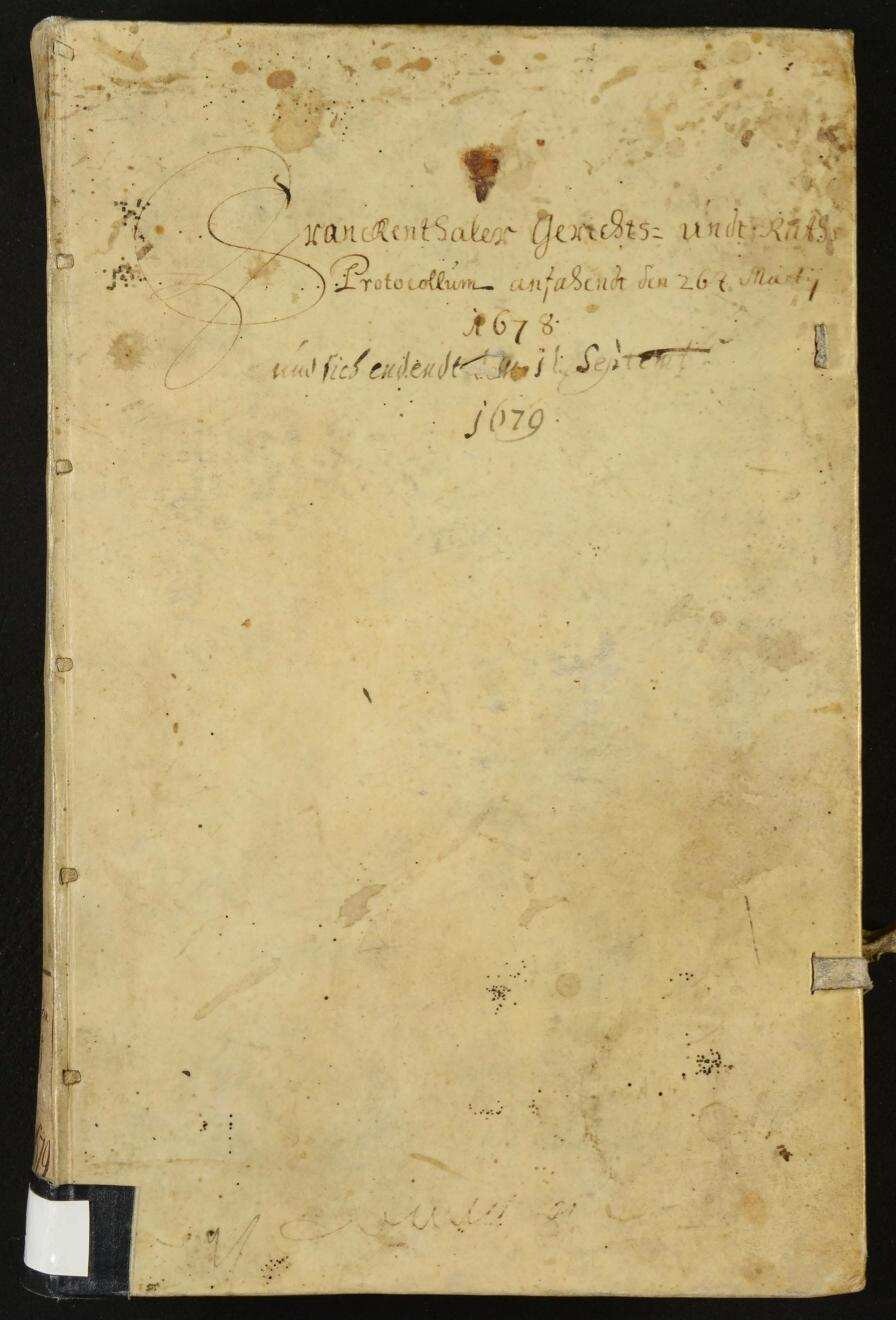 Franckenthaler Gerichts= undt Raths
Protocollum anfahendt den 26t. Martij
1678
und sich endendt den 11 Septemb
1679
79